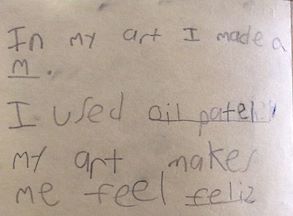 In my art I made a
M.
I used oil patel
my art makes
me feel feliz